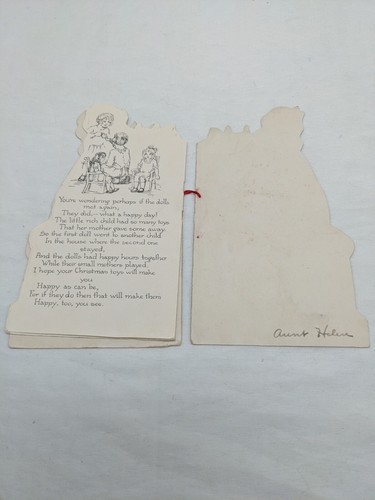 You're wondering perhaps if the dolls
met again,
They did,—what a happy day!
The little rich child had so many toys
That her mother gave some away.
So the first doll went to another child
In the house where the second one
stayed,
And the dolls had happy hours together
While their small mothers played.
I hope your Christmas toys will make
you
Happy as can be,
For if they do then that will make them
Happy, too, you see.
Aunt Helen